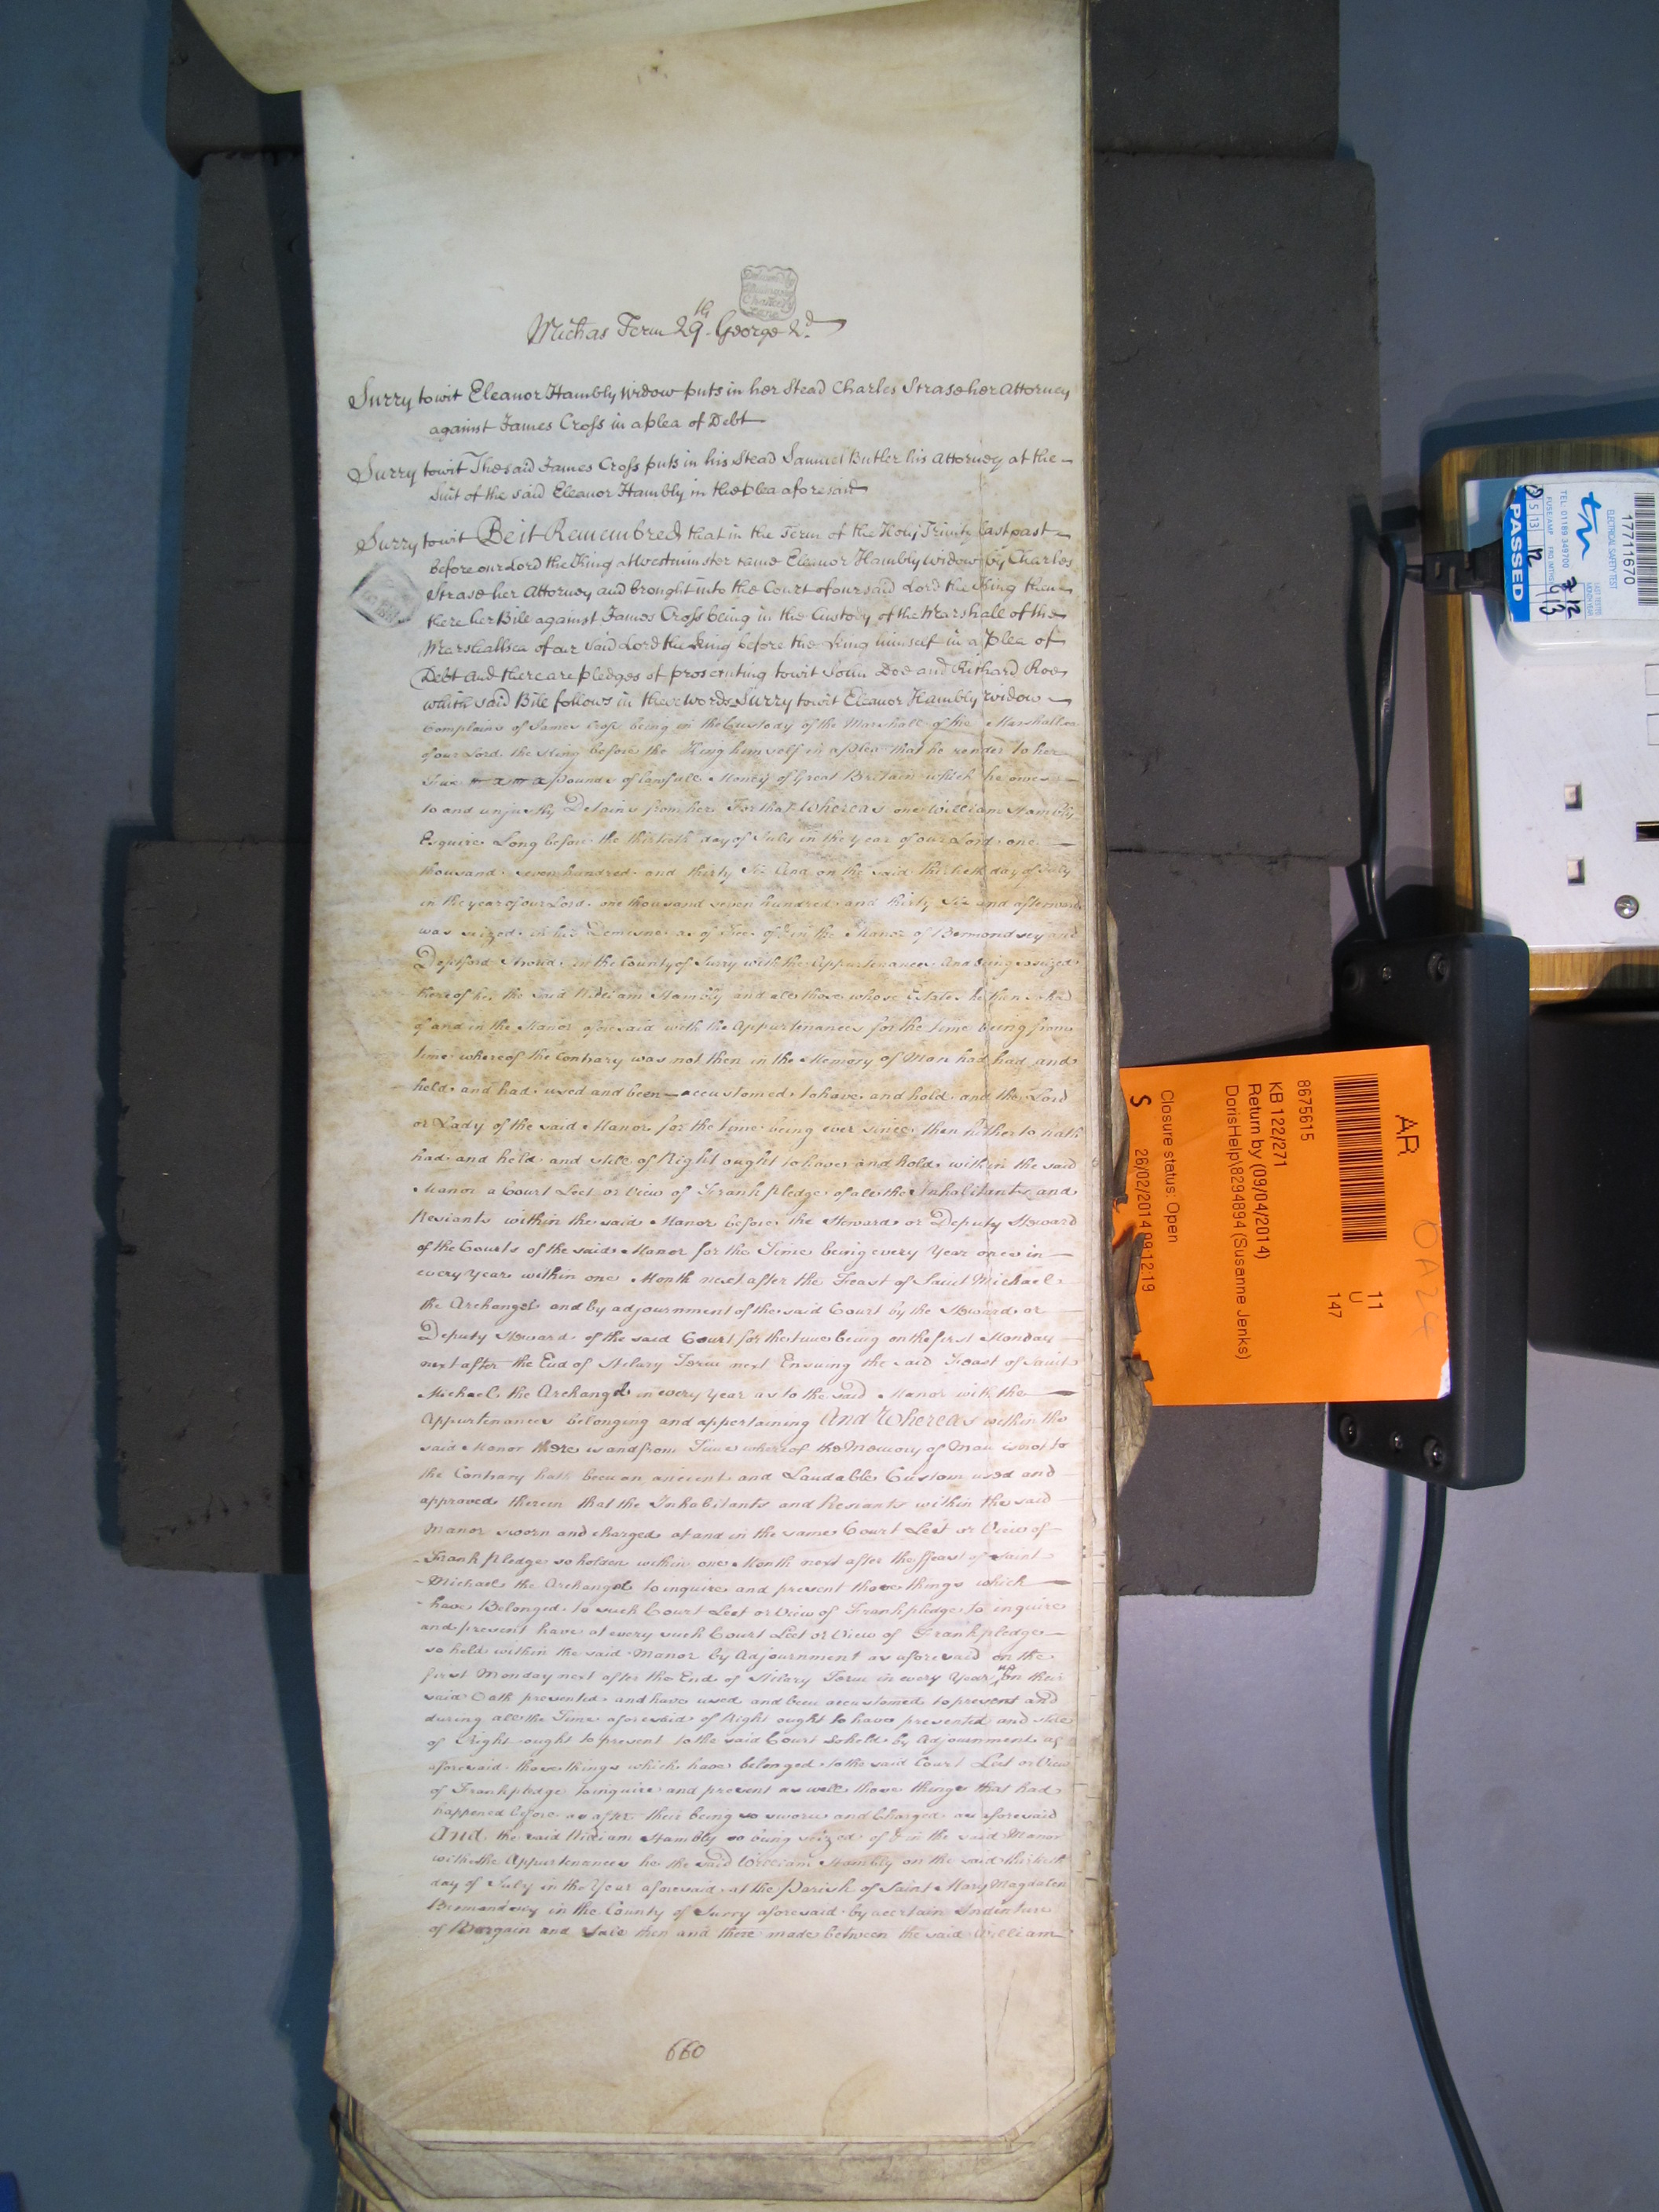 Michas Term 29th George 2d
Surry to wit Eleanor Hambly Widow puts in her Stead Charles Strase her Attorney
against James Cross in a plea of Debt
Surry to wit The said James Cross puts in his Stead Samuel Butler his Attorney at the
Suit of the said Eleanor Hambly in the plea aforesaid
Surry to wit Be it Remembred that in the Term of the Holy Trinity last past
before our Lord the King at Westminster came Eleanor Hambly Widow by Charles
Strase her Attorney and brought into the Court of our said Lord the King then
there her Bill against James Cross being in the Custody of the Marshall of the
Marshallsea of our said Lord the King before the King himself in a Plea of
Debt and there are pledges of prosecuting to wit John Doe and Richard Roe
which said Bill follows in these words Surry to wit Eleanor Hambly widow
Complains of James Cross being in the Custody of the Marshall of the Marshallsea
of our Lord the King before the King himself in a plea that he render to her
pounds of lawfull Money of Great Britain which he owes
to and unjustly Detains from her For that Whereas one William Hambly
Esquire Long before the thirtieth day of July in the year of our Lord one
thousand seven hundred and thirty Six And on the said thirtieth day of July
in the year of our Lord one thousand seven hundred and thirty Six and afterwards
was seized in his Demesne as of Fee of & in the Manor of Bermondsey and
Deptford Strond in the County of Surry with the Appurtenances And being so seized
thereof he the said William Hambly and all those whose Estate he then had
of and in the Manor aforesaid with the Appurtenances for the time being from
time whereof the Contrary was not then in the Memory of Man had had and
held and had used and been accustomed to have and hold and the Lord
or Lady of the said Manor for the time being ever since then hitherto hath
had and held and still of Right ought to have and hold within the said
Manor a Court Leet or View of Frankpledge of all the Inhabitants and
Resiants within the said Manor before the Steward or Deputy Steward
of the Courts of the said Manor for the Time being every Year once in
every year within one Month next after the Feast of Saint Michael
the Archangel and by adjournment of the said Court by the Steward or
Deputy Steward of the said Court for the time being on the first Monday
next after the End of Hilary Term next Ensuing the said Feast of Saint
Michael the Archangel in every Year as to the said Manor with the
Appurtenances belonging and appertaining And Whereas within the
said Manor there is and from Time whereof the Memory of Man is not to
the Contrary hath been an ancient and Laudable Custom used and
approved therein that the Inhabitants and Resiants within the said
Manor sworn and charged at and in the same Court Leet or View of
Frank pledge so holden within one Month next after the ffeast of Saint
Michael the Archangel to inquire and present those things which
have Belonged to such Court Leet or View of Frankpledge to inquire
and present have at every such Court Leet or View of Frankpledge
so held within the said Manor by Adjournment as aforesaid on the
first Monday next after the End of Hilary Term in every Year on their
said Oath presented and have used and been accustomed to present and
during all the Time aforesaid of Right ought to have presented and still
of Right ought to present to the said Court so held by Adjournment as
aforesaid those things which have belonged to the said Court Leet or View
of Frankpledge to inquire and present as well those things that had
happened before as after their being so sworn and Charged as aforesaid
And the said William Hambly so being seized of & in the said Manor
with the Appurtenances he the said William Hambly on the said thirtieth
day of July in the Year aforesaid at the Parish of Saint Mary Magdalen
Bermondsey in the County of Surry aforesaid by a certain Indenture
of Bargain and Sale then and there made between the said William
660
AR
11
U
147
8675615
KB 122/271
Return by (09/04/2014)
DorisHelp\8294894 (Susanne Jenks)
Closure status: Open
S 26/02/2014 09:12:19
OA24
17711670
ELECTRICAL SAFETY TEST
TEL: 01189 349700
PASSED